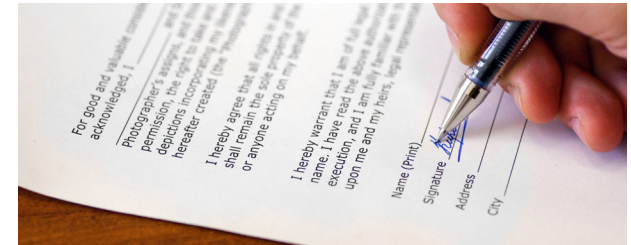 For good and valuable
acknowledged, I
Photographer's assigns, and
permission, the right to take and
depictions incorporating my
hereafter created (the "Photograph
I hereby agree that all rights in and
shall remain the sole property of the
or anyone acting on my behalf.
I hereby warrant that I am of full legal
name. I have read the above
execution, and I am fully familiar with
upon me and my heirs, legal
Name (Print)
Signature
Address
City